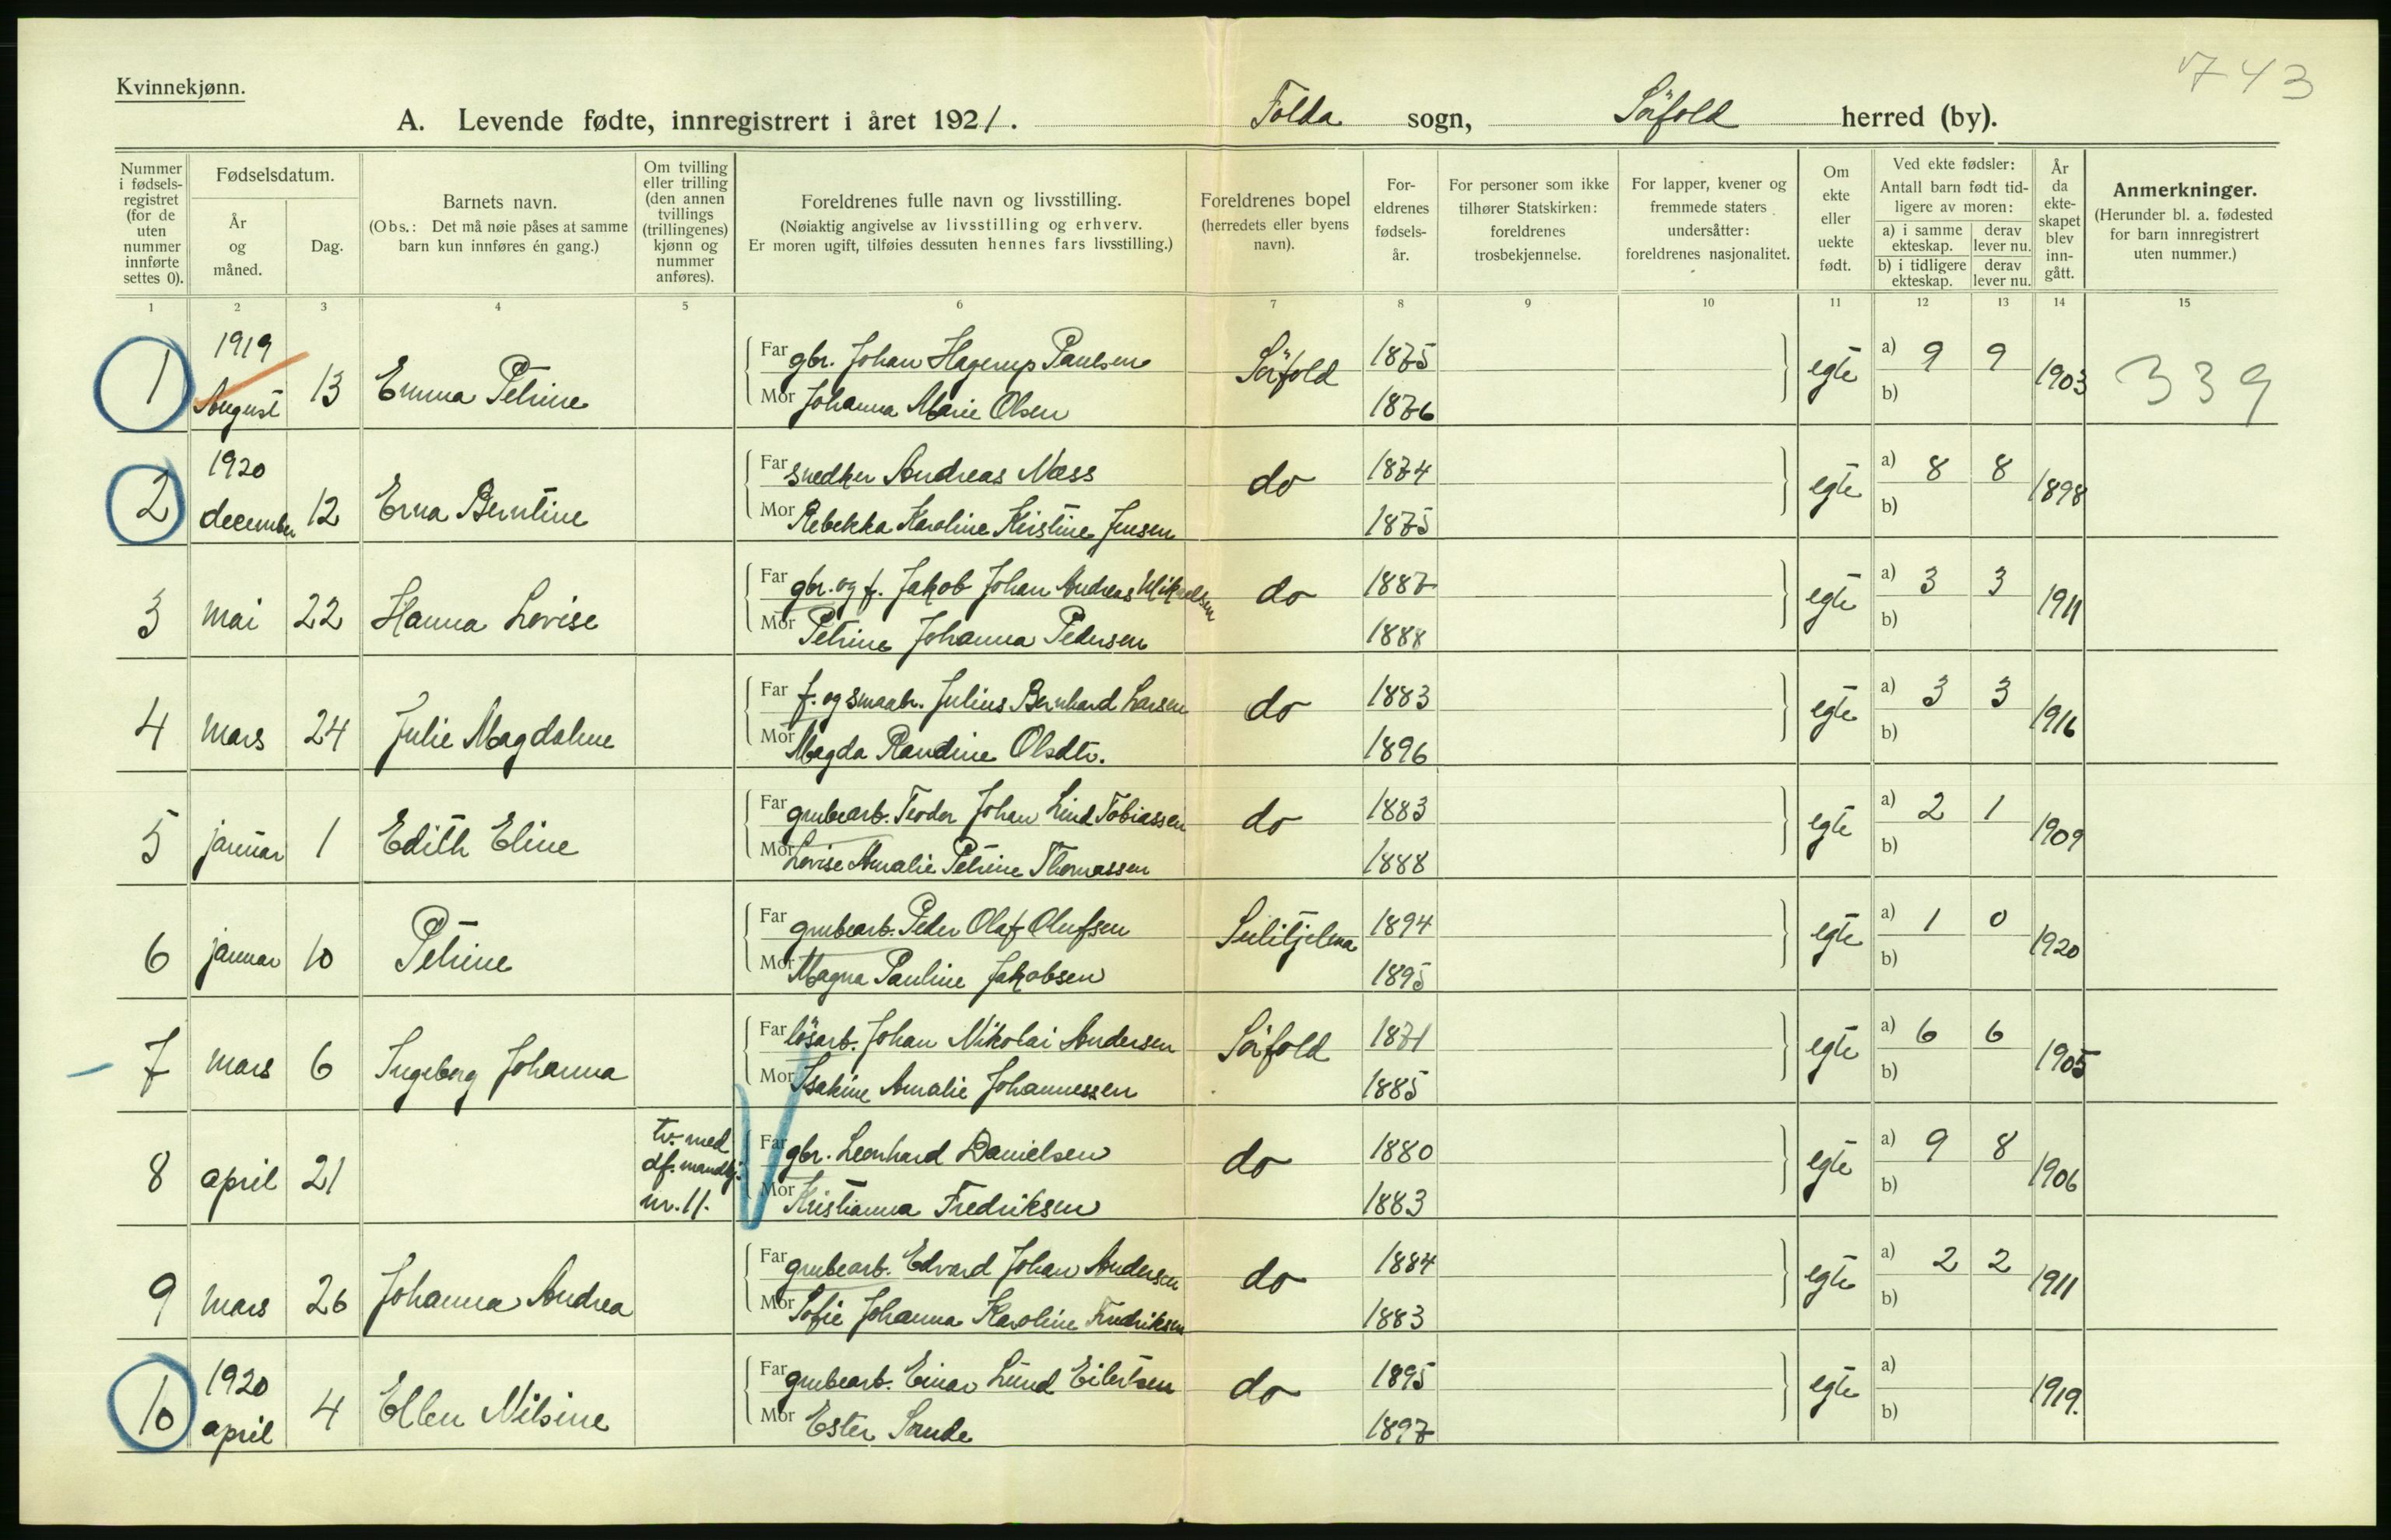 743
Kvinnekjønn.
A. Levende fødte, innregistrert i året 1921. Folda sogn, Sörfold herred (by).
Nummer i fødselsregistret (for de uten nummer innførte settes 0).
Fødselsdatum.
År og måned.
Dag.
Barnets navn.
(Obs.: Det må nøie påses at samme barn kun innføres én gang.)
Om tvilling eller trilling (den annen tvillings (trillingenes) kjønn og nummer anføres).
Foreldrenes fulle navn og livsstilling.
(Nøiaktig angivelse av livsstilling og erhverv.
Er moren ugift, tilføies dessuten hennes fars livsstilling.)
Foreldrenes bopel
(herredets eller byens navn).
Foreldrenes fødselsår.
For personer som ikke tilhører Statskirken: foreldrenes trosbekjennelse.
For lapper, kvener og fremmede staters undersåtter: foreldrenes nasjonalitet.
Om ekte eller uekte født.
Ved ekte fødsler:
Antall barn født tidligere av moren:
a) i samme ekteskap.
derav lever nu.
b) i tidligere ekteskap.
derav lever nu.
År da ekteskapet blev inngått.
Anmerkninger.
(Herunder bl. a. fødested for barn innregistrert uten nummer.)
1 2 3 4 5 6 7 8 9 10 11 12 13 14 15
1 1919 August 13 Emma Petrine
Far gbr. Johan Hagerup Paulsen Sörfold 1875 egte a) 9 9 1903 339
Mor Johanna Marie Olsen 1876 b)
2 1920 december 12 Erna Berntine
Far snedker Andreas Næss do 1874 egte a) 8 8 1898
Mor Rebekka Karoline Kristine Jensen 1875 b)
3 mai 22 Hanna Lovise
Far gbr. og f. Jakob Johan Andreas Mikaelsen do 1887 egte a) 3 3 1911
Mor Petrine Johanna Pedersen 1888 b)
4 mars 24 Julie Magdalene
Far f. og smaabr. Julius Bernhard Larsen do 1883 egte a) 3 3 1916
Mor Magda Randine Olsdtr. 1896 b)
5 januar 1 Edith Eline
Far grubearb. Teodor Johan Lind Tobiassen do 1883 egte a) 2 1 1909
Mor Lovise Amalie Petrine Thomassen 1888 b)
6 januar 10 Petrine
Far grubearb. Peder Olaf Olufsen Sulitjelma 1894 egte a) 1 0 1920
Mor Magna Pauline Jakobsen 1895 b)
7 mars 6 Ingeborg Johanna
Far lösarb. Johan Nikolai Andersen Sörfold 1871 egte a) 6 6 1905
Mor Isakine Amalie Johannessen 1885 b)
8 april 21 tv. med df. mandkj. nr. 11.
Far gbr. Leonhard Danielsen do 1880 egte a) 9 8 1906
Mor Kristianna Fredriksen 1883 b)
9 mars 26 Johanna Andrea
Far grubearb. Edvard Johan Andersen do 1884 egte a) 2 2 1911
Mor Sofie Johanna Karoline Fredriksen 1883 b)
10 1920 april 4 Ellen Nilsine
Far grubearb. Einar Lund Eilertsen do 1895 egte a) 1919.
Mor Ester Sande 1897 b)